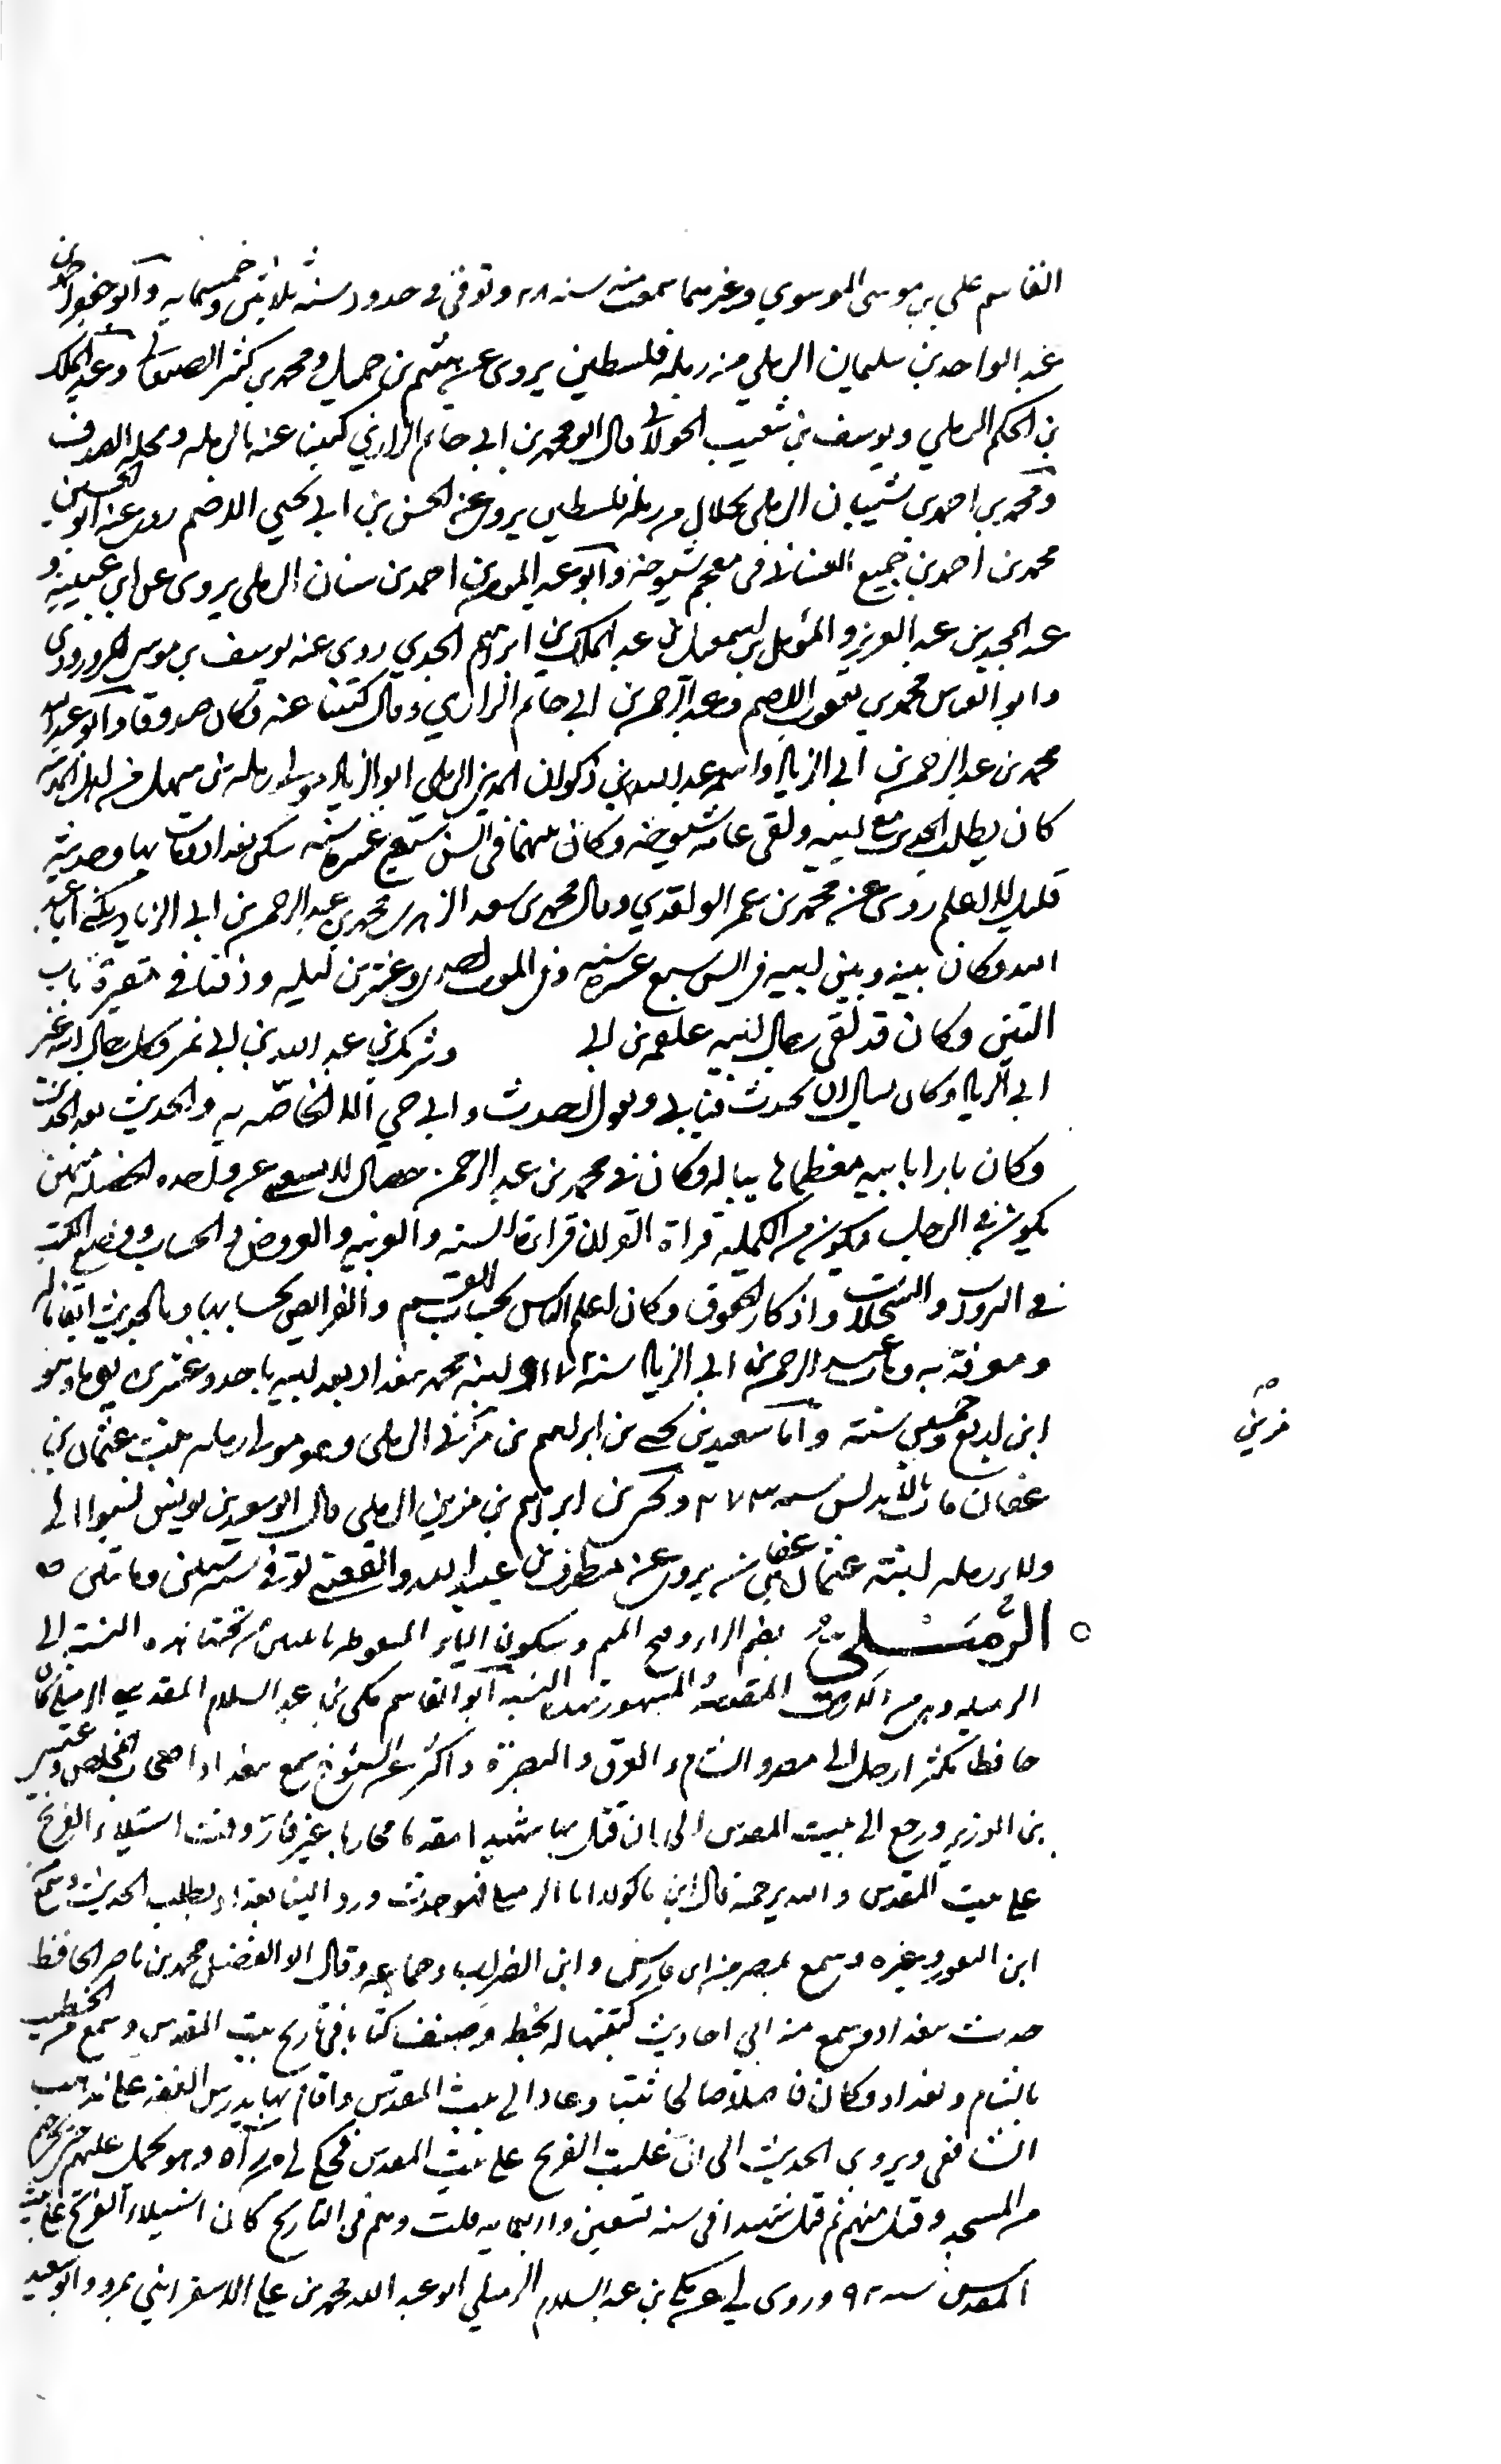 القاسم علي بن موسى الموسوي وغيرهما سمعت منه سنه ٢٨ وتوفى في حدود سنة ثلاثين وخمسمايه وابو جعفر احمد بن
عبد الواحد بن سليمان الرملي من رملة فلسطين يروى عن هيثم بن جميل ومحمد بن كثير الصنعاني وعبد الملك
بن الحكم الرملي ويوسف بن شعيب الخولاني قال ابو محمد بن ابي حاتم الرازي كتبنا عنه بالرمله ومحله الصدق
ومحمد بن احمد بن شيبان الرملي الخلال من رملة فلسطين يروى عن الحسن بن ابي يحيي الاصم روى عنه ابو الحسين
محمد بن احمد بن جميع الغساني في معجم شيوخه وابو عبد المومن احمد بن سنان الرملي يروى عن ابن عيينه و
عبد المجيد بن عبد العزيز والمؤمل بن اسمعيل وعبد الملك بن ابراهيم الجدي روى عنه يوسف بن موسى المروروذى
وابو العباس محمد بن يعقوب الاصم وعبد الرحمن بن ابي حاتم الرازي وقال كتبنا عنه وكان صدوقا وابو عبد الله
محمد بن عبد الرحمن بن ابي الزناد واسمه عبد الله بن ذكوان المديني الرملي ابو الزناد مولى رمله من اهل المدينة
كان يطلب الحديث مع ابيه ولقى عامة شيوخه وكان بينهما في السن سبع عشرة سنه سكن بغداد ومات بها وحديثه
قليل العلم روى عنه محمد بن عمر الواقدي وقال محمد بن سعد محمد بن عبد الرحمن بن ابي الزناد يكنى ابا عبد
الله وكان بينه وبين ابيه في السن سبع عشرة سنه وفي الموت احدى وعشرين ليله ودفنا في مقبرة باب
التين وكان قد لقى رجال ابيه علقمه بن ابي وشريك بن عبد الله بن ابي نمر وكل رجال ابيه غير
ابي الزناد وكان يسال ان يحدث فيابى ويقول احدث وابي حي الا الخاصه به والحديث بعد الحديث
وكان بارا بابيه معظما له يهابه وكان في محمد بن عبد الرحمن خصال لا يستغنى عن واحده الخصله منهن
يكون في الرجل فيكون من الكمله قراة القران قراة السنه والعربيه والعروض والحساب ووضع الكتب
في البروات والسجلات واذكار الحقوق وكان اعلم الناس بحساب القسم والفرايض بحسابها وبالحديث اتقانا له
ومعرفة به ومات عبد الرحمن بن ابي الزناد سنة ١٧٤ وابنه محمد ببغداد بعد ابيه باحد وعشرين يوما وهو
ابن اربع وخمسين سنة واما سعيد بن يحيى بن ابراهيم بن مزين الرملي وهو مولى رمله بنت عثمان بن
عفان مات بالاندلس سنه ٢٧٣ ويحيى بن ابراهيم بن مزين الرملي قال ابو سعيد بن يونس نسبوا الى
ولاء رمله ابنة عثمان بن عفان يروى عن مطرف بن عبد الله والقعنبي توفي سنه ستين وماتين ٥
الرُّمَيْلي بضم الراء وفتح الميم وسكون الياء المنقوطه باثنين من تحتها هذه النسبة الى
الرميله وهي من الاراضي المقدسة المشهور بهذه النسبه ابو القاسم مكي بن عبد السلام المقدسي الرميلي كان
حافظا مكثرا رحل الى مصر والشام والعراق والبصرة واكثر عن الشيوخ سمع ببغداد اصحاب المخلص وعيسى
بن الوزير ورجع الى بيت المقدس الى ان قتل بها شهيدا مقدما محاربا غير فار وقت استيلاء الفرنج
على بيت المقدس والله يرحمه قال ابن ماكولا اما الرميلي فهو حدث ورد الينا بغداد لطلب الحديث وسمع
ابن النقور وغيره وسمع بمصر من ابن فارس وابن الضراب وجماعه وقال ابو الفضل محمد بن ناصر الحافظ
حدث ببغداد وسمع منه ابي احاديث كتبتها له بخطه وصنف كتابا في تاريخ بيت المقدس وسمع من الخطيب
بالشام وبغداد وكان فاضلا صالحا ثبتا وعاد الى بيت المقدس واقام بها يدرس الفقه على مذهب
الشافعي ويروي الحديث الى ان غلبت الفرنج على بيت المقدس فحكى لي من راه وهو يحمل عليهم حتى اخرجهم
من المسجد وقتل منهم ثم قتل شهيدا في سنه تسعين واربعمايه قلت وهم في التاريخ كان استيلاء الفرنج على بيت
المقدس سنه ٩٢ وروى لي عن مكي بن عبد السلام الرميلي ابو عبد الله محمد بن علي الاسفرايني بمرو وابو سعيد
مزين